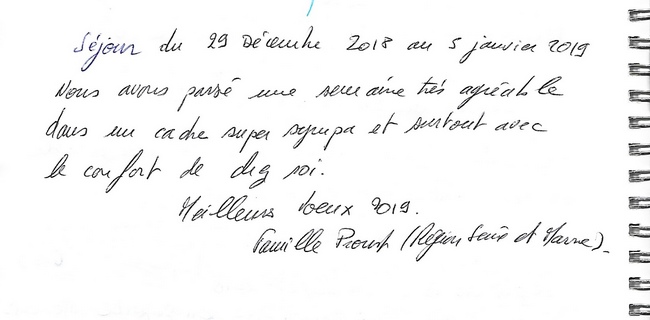 Séjour du 29 Décembre 2018 au 5 janvier 2019
Nous avons passé une semaine très agréable
dans un cadre super sympa et surtout avec
le confort de chez soi.
Meilleurs voeux 2019.
Famille Proust (Région Seine et Marne)_